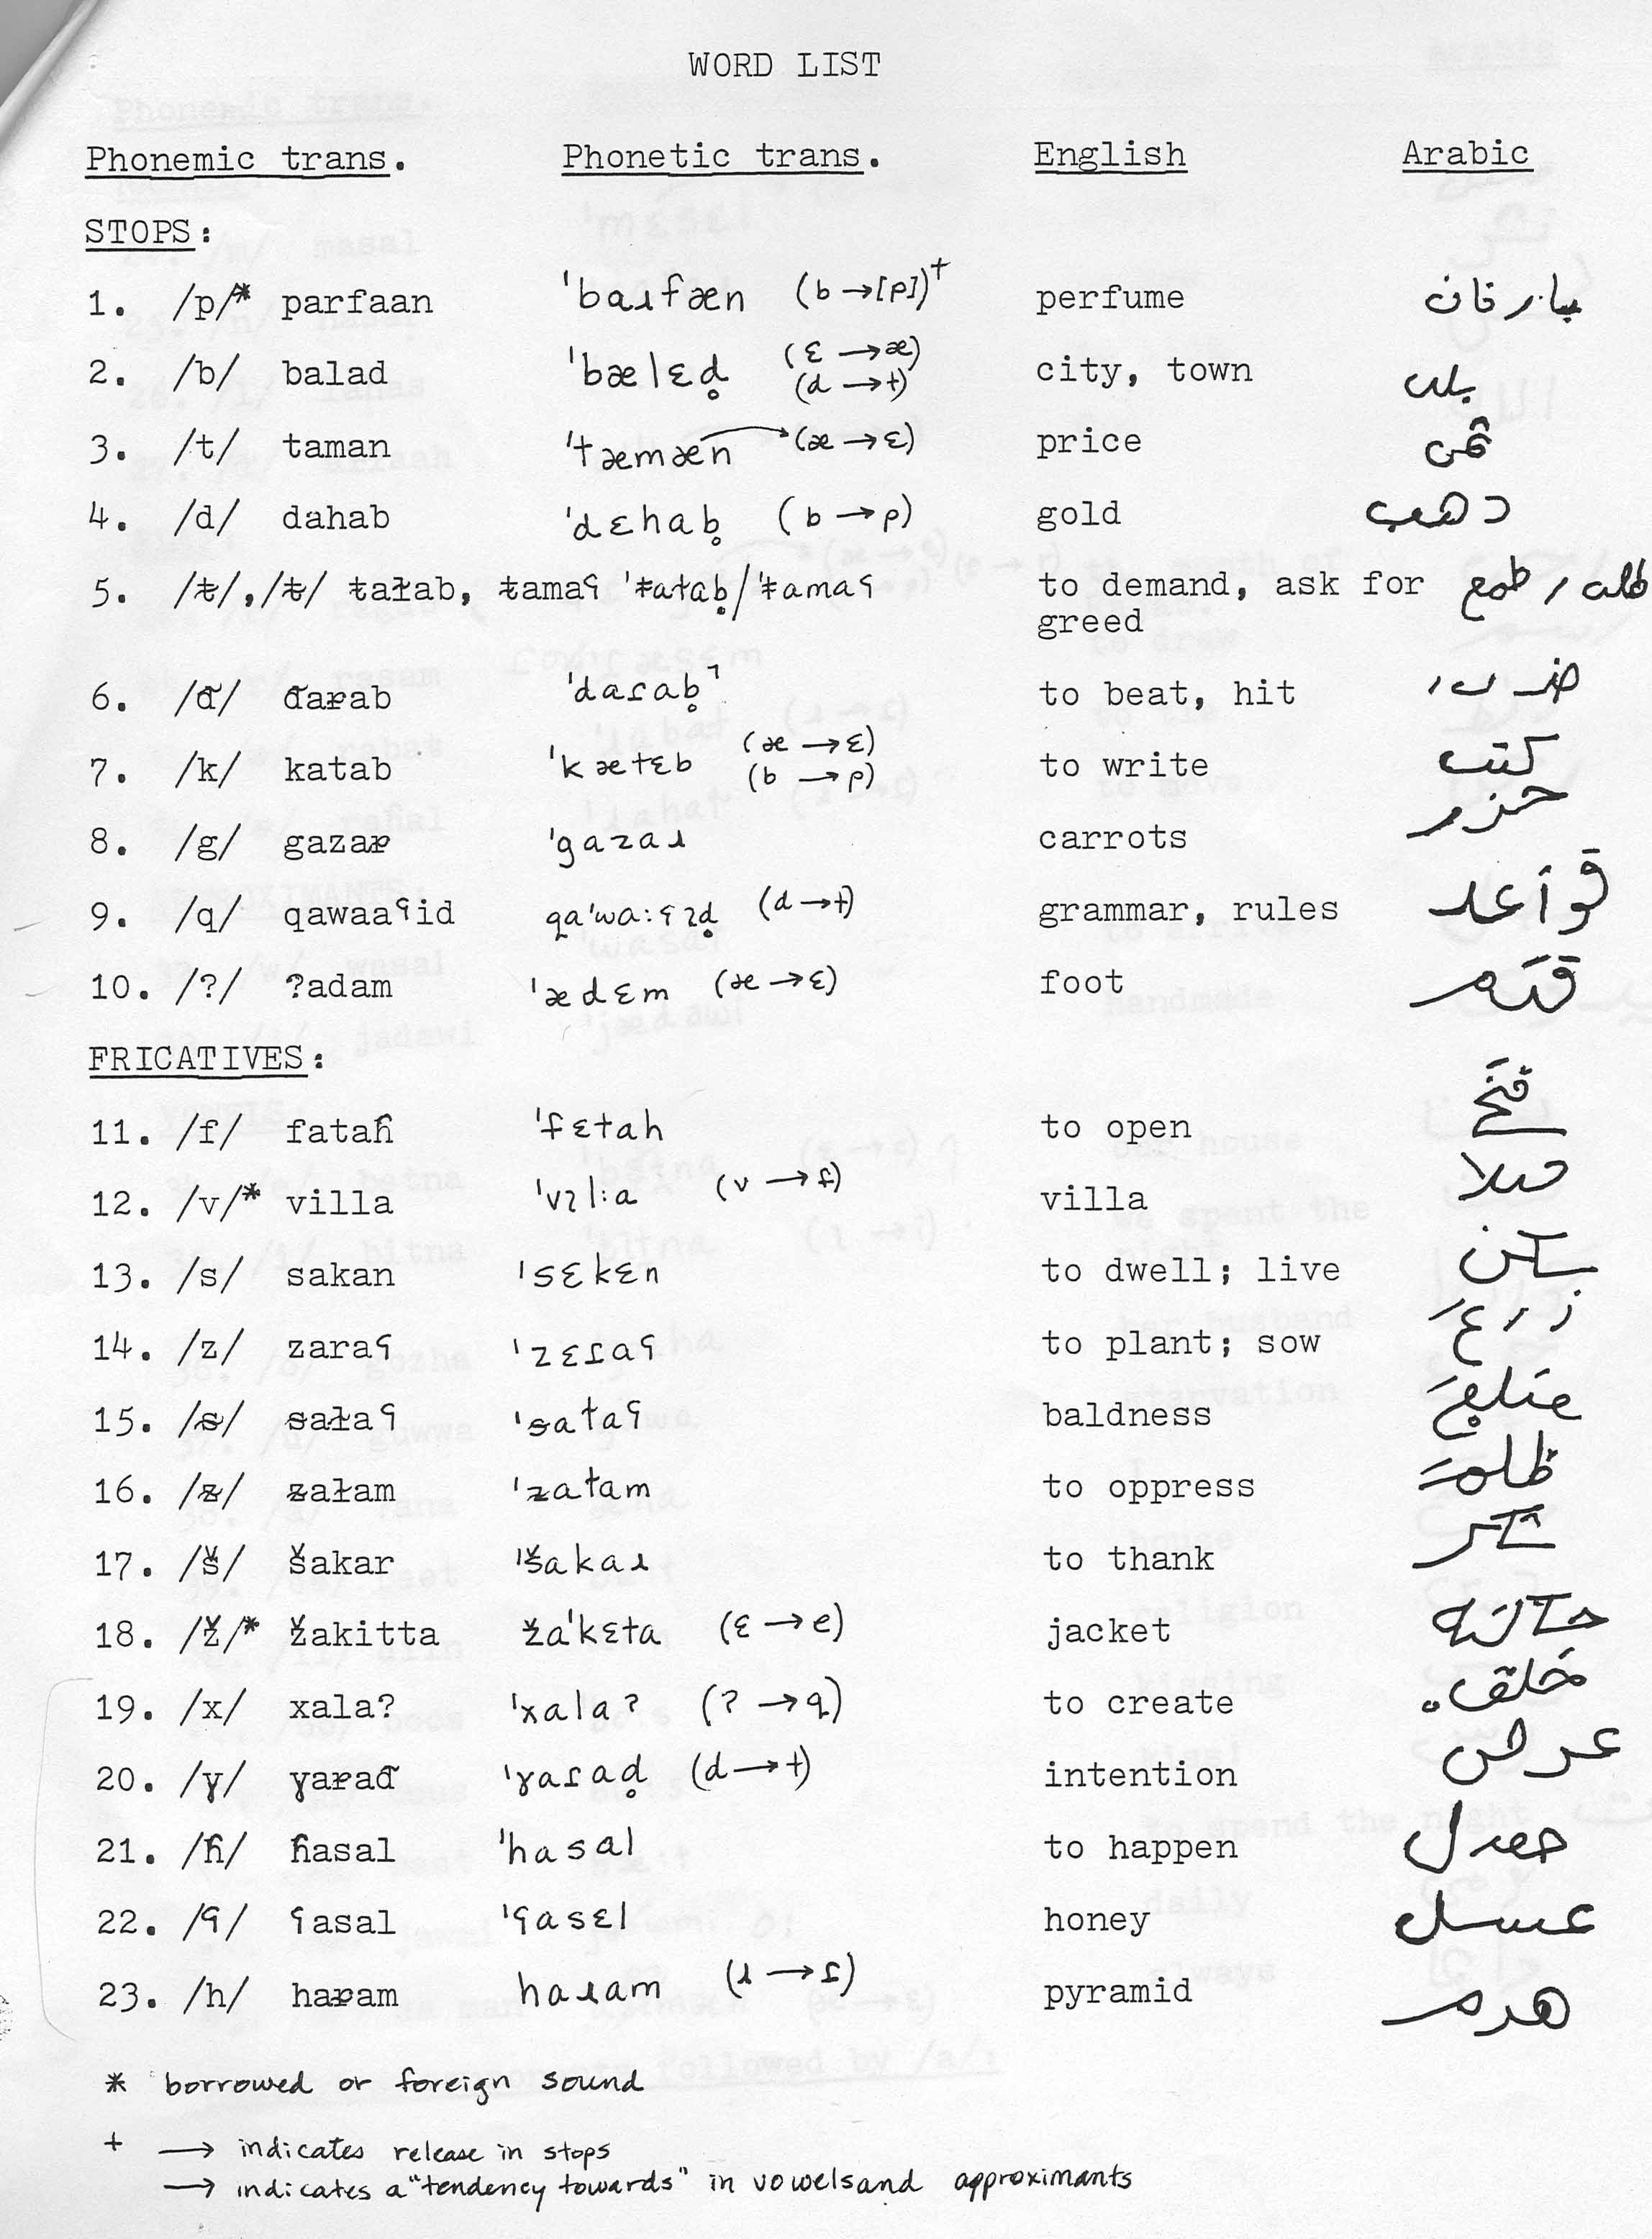 WORD LIST
Phonemic trans. Phonetic trans. English Arabic
STOPS:
1. /p/* parfaan ˈbaɹfæn (b→[p])⁺ perfume بارفان
2. /b/ balad ˈbælɛd̥ (ɛ→æ) (d→t) city, town بلد
3. /t/ taman ˈtæmæn (æ→ɛ) price ثمن
4. /d/ dahab ˈdɛhab̥ (b→p) gold دهب
5. /ŧ/,/ŧ/ ŧaɫab, ŧamaʕ ˈŧaɫab̥/ˈŧamaʕ to demand, ask for طمع / طلب
greed
6. /d̴/ d̴aɍab ˈdaɾab̥̚ to beat, hit ضرب
7. /k/ katab ˈkætɛb (æ→ɛ) (b→p) to write كتب
8. /g/ gazaɍ ˈgazaɹ carrots جزر
9. /q/ qawaaʕid qaˈwa:ʕɪd̥ (d→t) grammar, rules قواعد
10. /?/ ?adam ˈædɛm (æ→ɛ) foot قدم
FRICATIVES:
11. /f/ fataɦ ˈfɛtah to open فتح
12. /v/* villa ˈvɪl:a (v→f) villa فيلا
13. /s/ sakan ˈsɛkɛn to dwell; live سكن
14. /z/ zaraʕ ˈzɛɾaʕ to plant; sow زرع
15. /s̵/ s̵aɫaʕ ˈs̵aɫaʕ baldness
16. /ƶ/ ƶaɫam ˈƶaɫam to oppress ظلم
17. /š/ šakar ˈšakaɹ to thank شكر
18. /ž/* žakitta žaˈkɛta (ɛ→e) jacket جاكته
19. /x/ xala? ˈxala? (?→q) to create خلق
20. /ɣ/ ɣaɍad̴ ˈɣaɾad̥ (d→t) intention
21. /ɦ/ ɦasal ˈhasal to happen حصل
22. /ʕ/ ʕasal ˈʕasɛl honey عسل
23. /h/ haɍam haɹam (ɹ→ɾ) pyramid هرم
* borrowed or foreign sound
+ → indicates release in stops
→ indicates a "tendency towards" in vowels and approximants